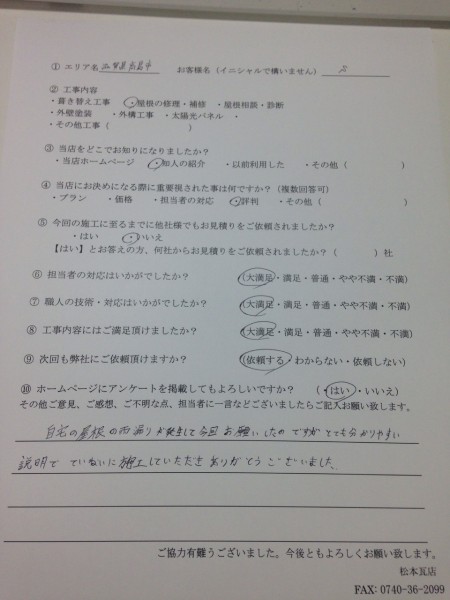 ① エリア名 滋賀県高島市 お客様名（イニシャルで構いません）
② 工事内容
・葺き替え工事 ・屋根の修理・補修 ・屋根相談・診断
・外壁塗装 ・外構工事 ・太陽光パネル ・
・その他工事（ ）
③ 当店をどこでお知りになりましたか？
・当店ホームページ ・知人の紹介 ・以前利用した ・その他（ ）
④ 当店にお決めになる際に重要視された事は何ですか？（複数回答可）
・プラン ・価格 ・担当者の対応 ・評判 ・その他（ ）
⑤ 今回の施工に至るまでに他社様でもお見積りをご依頼されましたか？
・はい ・いいえ
【はい】とお答えの方、何社からお見積りをご依頼されましたか？（ ）社
⑥ 担当者の対応はいかがでしたか？ （大満足・満足・普通・やや不満・不満）
⑦ 職人の技術・対応はいかがでしたか？ （大満足・満足・普通・やや不満・不満）
⑧ 工事内容にはご満足頂けましたか？ （大満足・満足・普通・やや不満・不満）
⑨ 次回も弊社にご依頼頂けますか？ （依頼する・わからない・依頼しない）
⑩ ホームページにアンケートを掲載してもよろしいですか？ （・はい・いいえ）
その他ご意見、ご感想、ご不明な点、担当者に一言などございましたらご記入お願い致します。
自宅の屋根の雨漏りが発生して今回お願いしたのですがとても分かりやすい
説明で ていねいに施工していただきありがとうございました。
ご協力有難うございました。今後ともよろしくお願い致します。
松本瓦店
FAX: 0740-36-2099